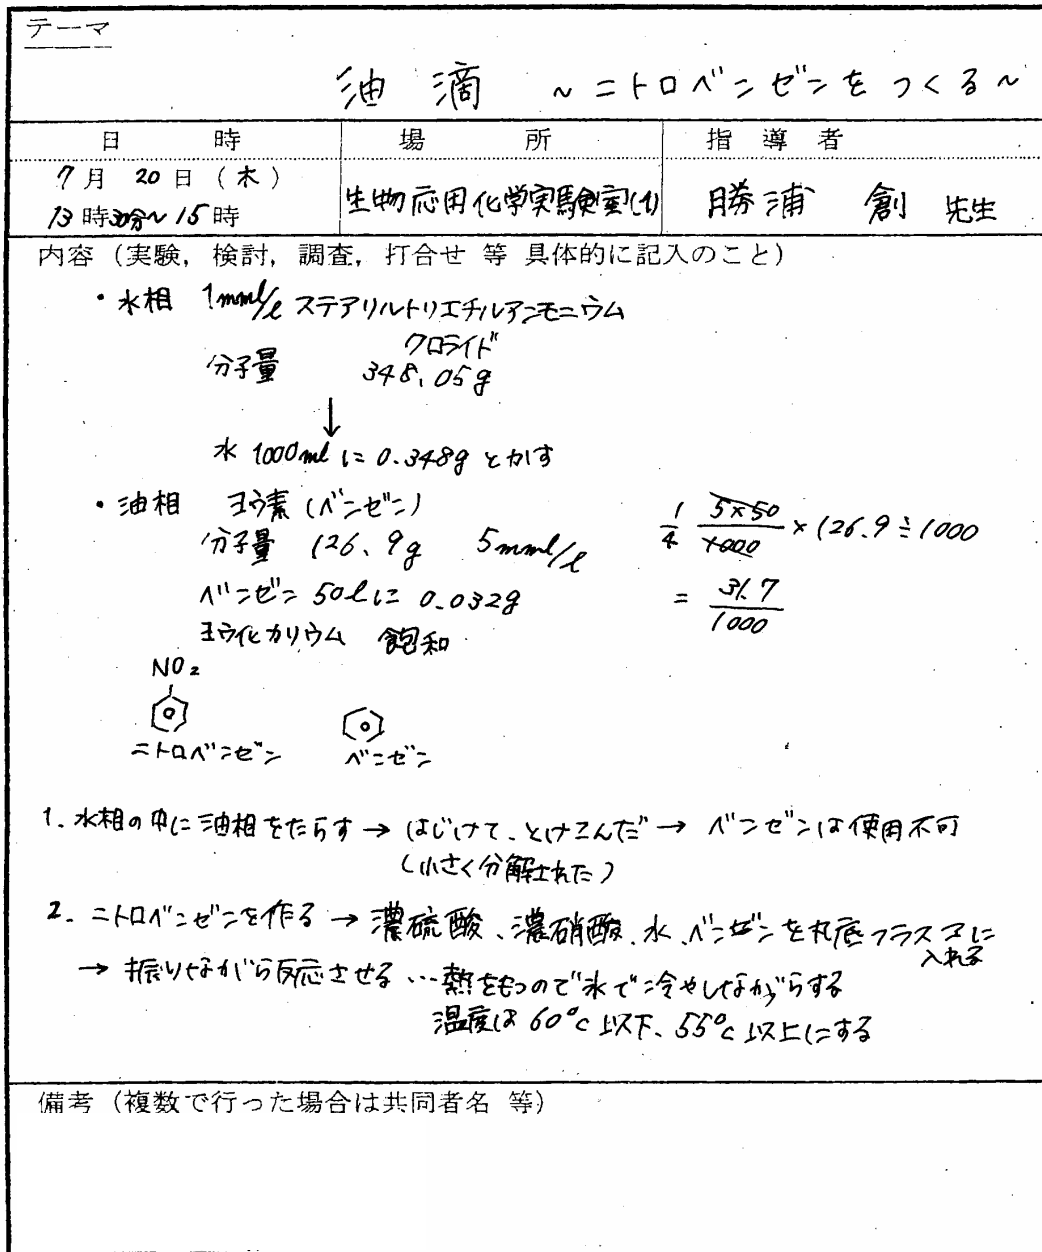 テーマ
油滴 ～ニトロベンゼンをつくる～
日時 場所 指導者
7月20日(木) 生物応用化学実験室(1) 勝浦 創 先生
13時30分～15時
内容(実験, 検討, 調査, 打合せ 等 具体的に記入のこと)
・水相 1mml/l ステアリルトリエチルアンモニウム
クロライド
分子量 348.05g
↓
水 1000mlに 0.348g とかす
・油相 ヨウ素(ベンゼン)
分子量 126.9g 5mml/l
1/4 5×50/1000 ×126.9÷1000
ベンゼン 50lに 0.032g = 31.7/1000
ヨウ化カリウム 飽和
NO2
ニトロベンゼン ベンゼン
1. 水相の中に油相をたらす → はじけて、とけこんだ → ベンゼンは使用不可
(小さく分解された)
2. ニトロベンゼンを作る → 濃硫酸、濃硝酸、水、ベンゼンを丸底フラスコに
入れる
→ 振りながら反応させる … 熱をもつので氷で冷やしながらする
温度は 60°C 以下、55°C 以上にする
備考(複数で行った場合は共同者名 等)